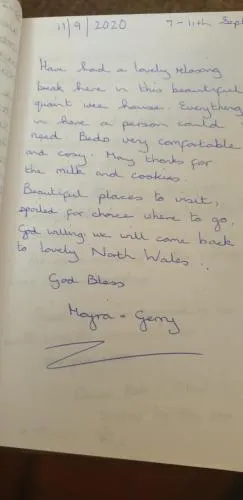 11/9/2020 7-11th Sept
Have had a lovely relaxing
break here in this beautiful
quant wee house. Everything
in here a person could
need. Beds very comfortable
and cosy. Many thanks for
the milk and cookies.
Beautiful places to visit,
spoiled for choice where to go.
God willing we will come back
to lovely North Wales..
God Bless
Moyra + Gerry